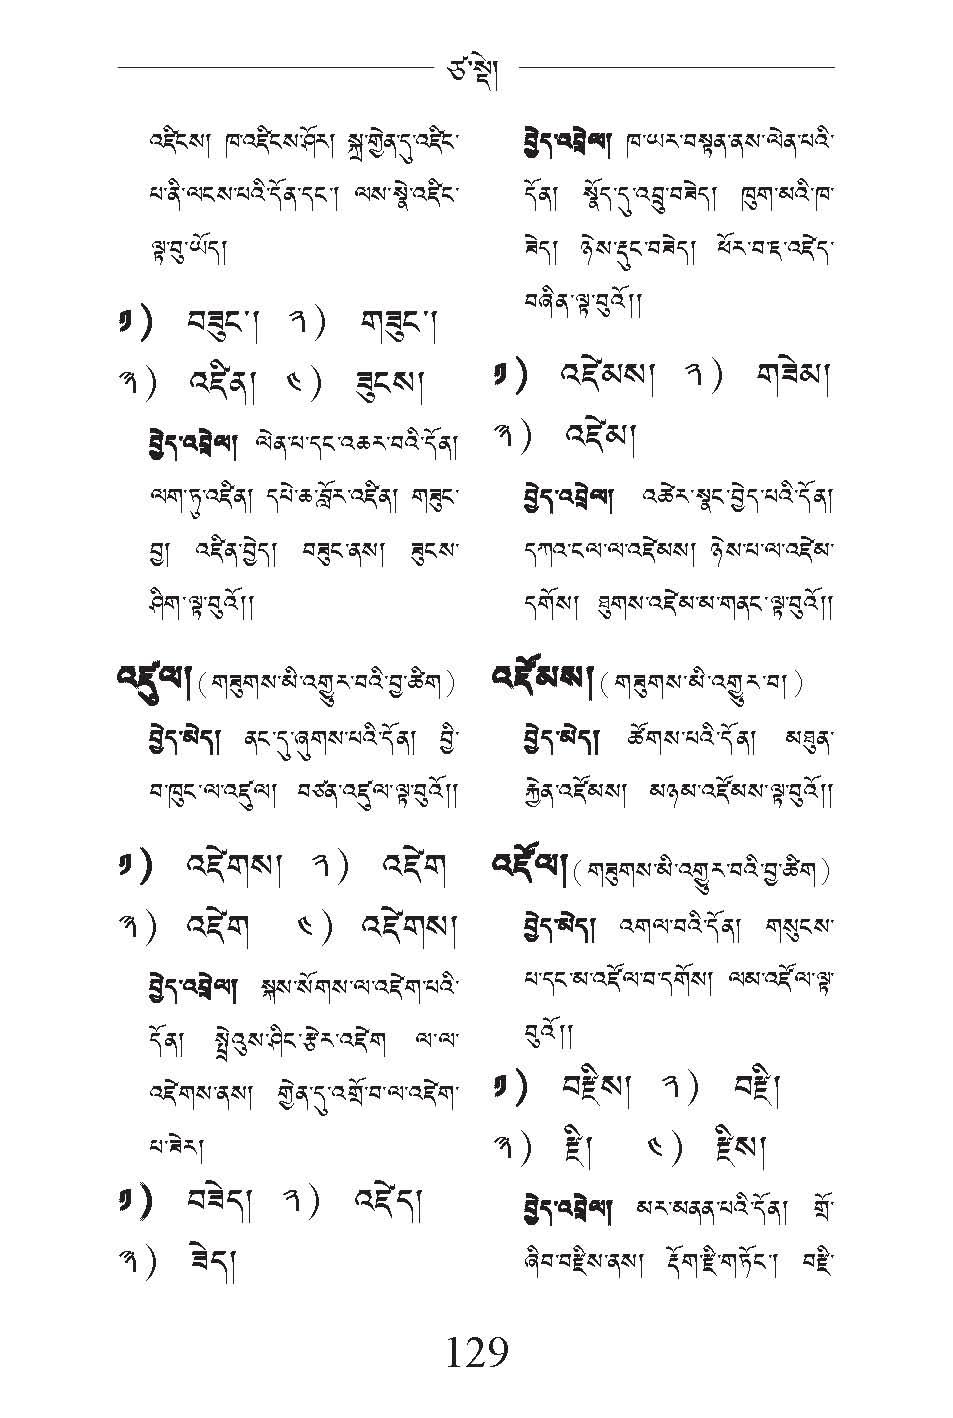 ཙ་སྡེ།
འཛིངས། ཁ་འཛིངས་ཤོར། སྐྲ་གྱེན་དུ་འཛིང་
པ་ནི་ལངས་པའི་དོན་དང་། ལས་སྣེ་འཛིང་
ལྟ་བུ་ཡོད།
༡) བཟུང་། ༢) གཟུང་།
༣) འཛིན། ༤) ཟུངས།
བྱེད་འབྲེལ། ལེན་པ་དང་འཆར་བའི་དོན།
ལག་ཏུ་འཛིན། དཔེ་ཆ་བློར་འཛིན། གཟུང་
བྱ། འཛིན་བྱེད། བཟུང་ནས། ཟུངས་
ཤིག་ལྟ་བུའོ།།
འཛུལ། (གཟུགས་མི་འགྱུར་བའི་བྱ་ཚིག)
བྱེད་མེད། ནང་དུ་ཞུགས་པའི་དོན། བྱི་
བ་ཁུང་ལ་འཛུལ། བཙན་འཛུལ་ལྟ་བུའོ།།
༡) འཛེགས། ༢) འཛེག
༣) འཛེག ༤) འཛེགས།
བྱེད་འབྲེལ། སྐས་སོགས་ལ་འཛེག་པའི་
དོན། སྤྲེའུས་ཤིང་རྩེར་འཛེག ལ་ལ་
འཛེགས་ནས། གྱེན་དུ་འགྲོ་བ་ལ་འཛེག་
པ་ཟེར།
༡) བཟེད། ༢) འཛེད།
༣) ཟེད།
བྱེད་འབྲེལ། ཁ་ཡར་བསྟན་ནས་ལེན་པའི་
དོན། སྣོད་དུ་འབྲུ་བཟེད། ཁུག་མའི་ཁ་
ཟེད། ཉེས་རྡུང་བཟེད། ཕོར་བ་ཇ་འཛེད་
བཞིན་ལྟ་བུའོ།།
༡) འཛེམས། ༢) གཟེམ།
༣) འཛེམ།
བྱེད་འབྲེལ། འཚེར་སྣང་བྱེད་པའི་དོན།
དཀའ་ངལ་ལ་འཛེམས། ཉེས་པ་ལ་འཛེམ་
དགོས། ཐུགས་འཛེམ་མ་གནང་ལྟ་བུའོ།།
འཛོམས། (གཟུགས་མི་འགྱུར་བ།)
བྱེད་མེད། ཚོགས་པའི་དོན། མཐུན་
རྐྱེན་འཛོམས། མཉམ་འཛོམས་ལྟ་བུའོ།།
འཛོལ། (གཟུགས་མི་འགྱུར་བའི་བྱ་ཚིག)
བྱེད་མེད། འགལ་བའི་དོན། གསུངས་
པ་དང་མ་འཛོལ་བ་དགོས། ལམ་འཛོལ་ལྟ་
བུའོ།།
༡) བརྫིས། ༢) བརྫི།
༣) རྫི། ༤) རྫིས།
བྱེད་འབྲེལ། མར་མནན་པའི་དོན། གྲོ་
ཞིབ་བརྫིས་ནས། རྡོག་རྫི་གཏོང་། བརྫི་
129